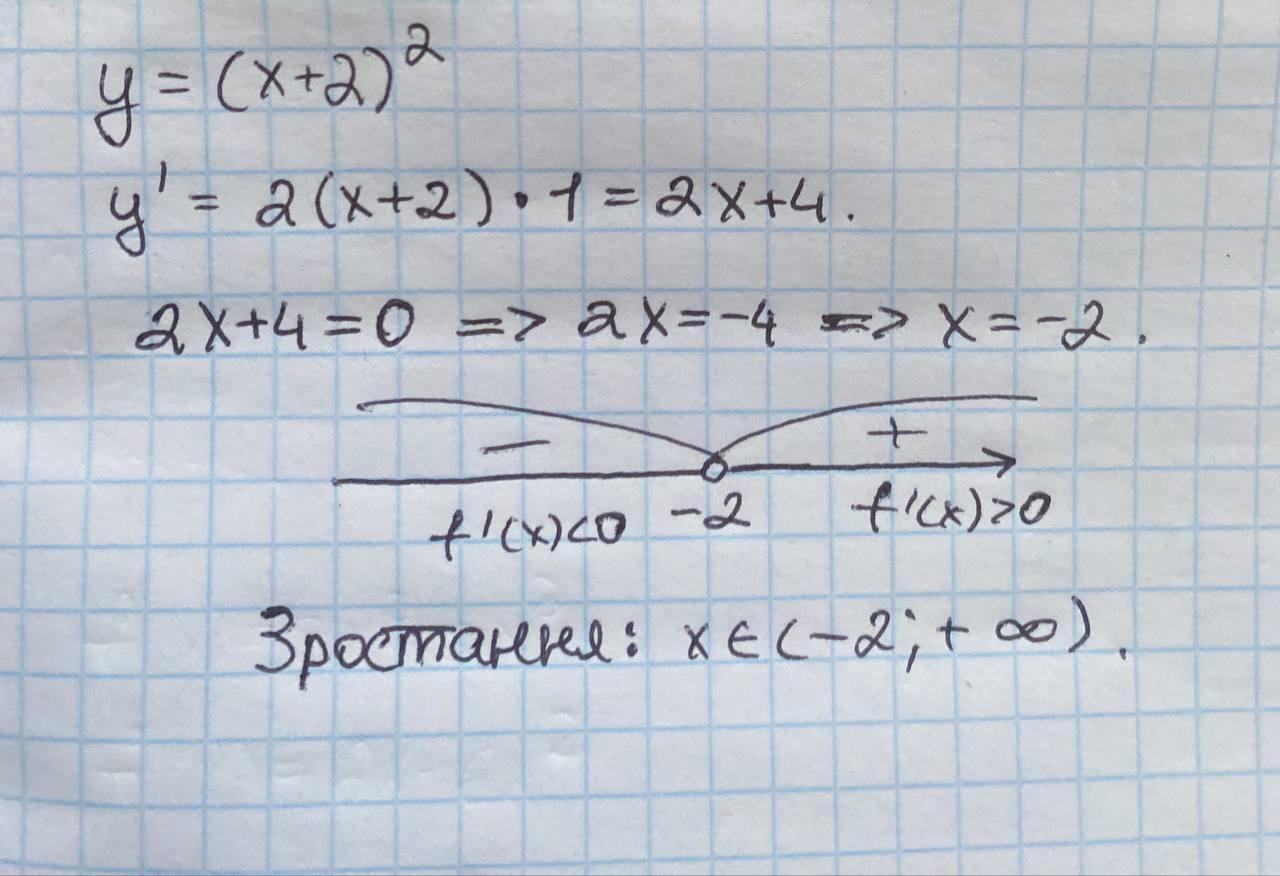 y = (x+2)²
y' = 2(x+2)·1 = 2x+4.
2x+4=0 => 2x=-4 => x=-2.
− +
f'(x)<0 -2 f'(x)>0
Зростання: x∈(-2;+∞).